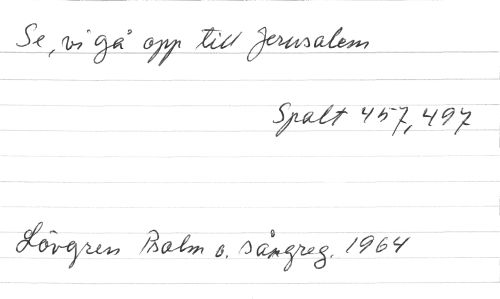 Se, vi gå opp till Jerusalem
Spalt 457, 497
Lövgren Psalm o. sångreg. 1964